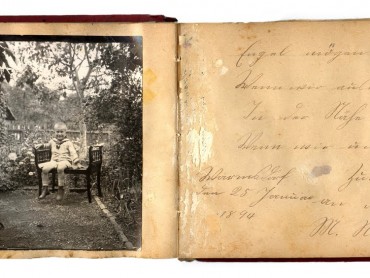 Engel mögen
Wenn wir au
In der Nähe
Wenn wir u
Warnsdorf
den 25 Januar
1894
M.